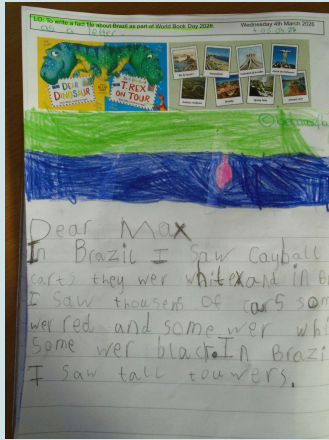 LO: To write a fact file about Brazil as part of World Book Day 2026.
Wednesday 4th March 2026
as a letter
DEAR DINOSAUR
T.REX ON TOUR
Dear Max
In Brazil I saw cayball
carts they wer whitexand in B
I saw thousens of cars som
wer red and some wer whi
Some wer black. In Brazi
I saw tall touwers.